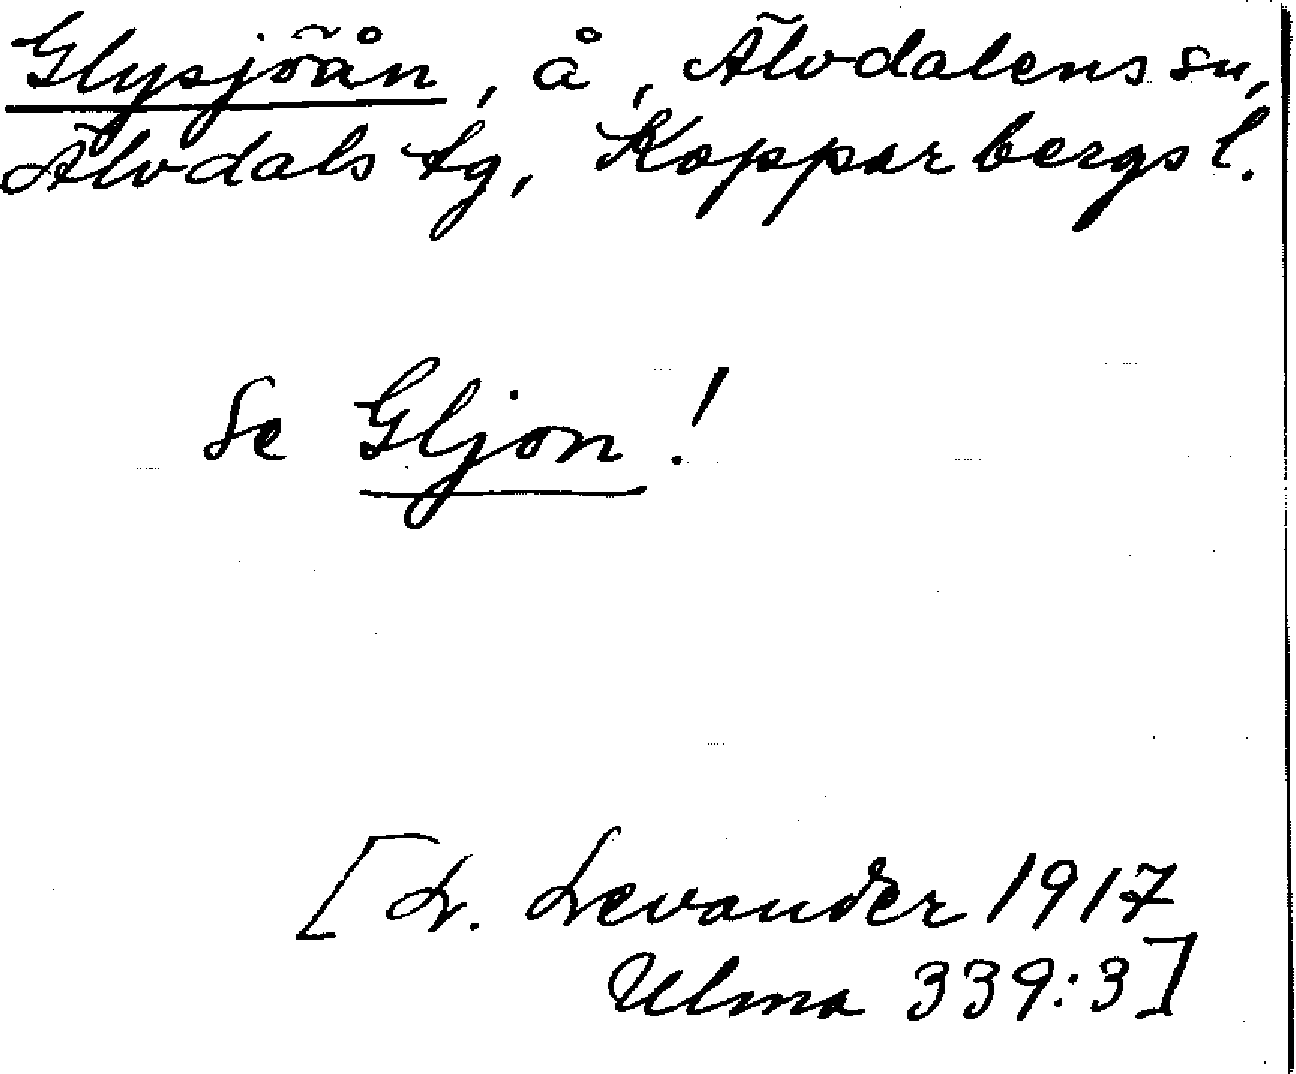 Glysjöån, å, Älvdalens sn,
Älvdals tg, Kopparbergs l.
Se Gljon!
[L. Levander 1917
Ulma 339:3]